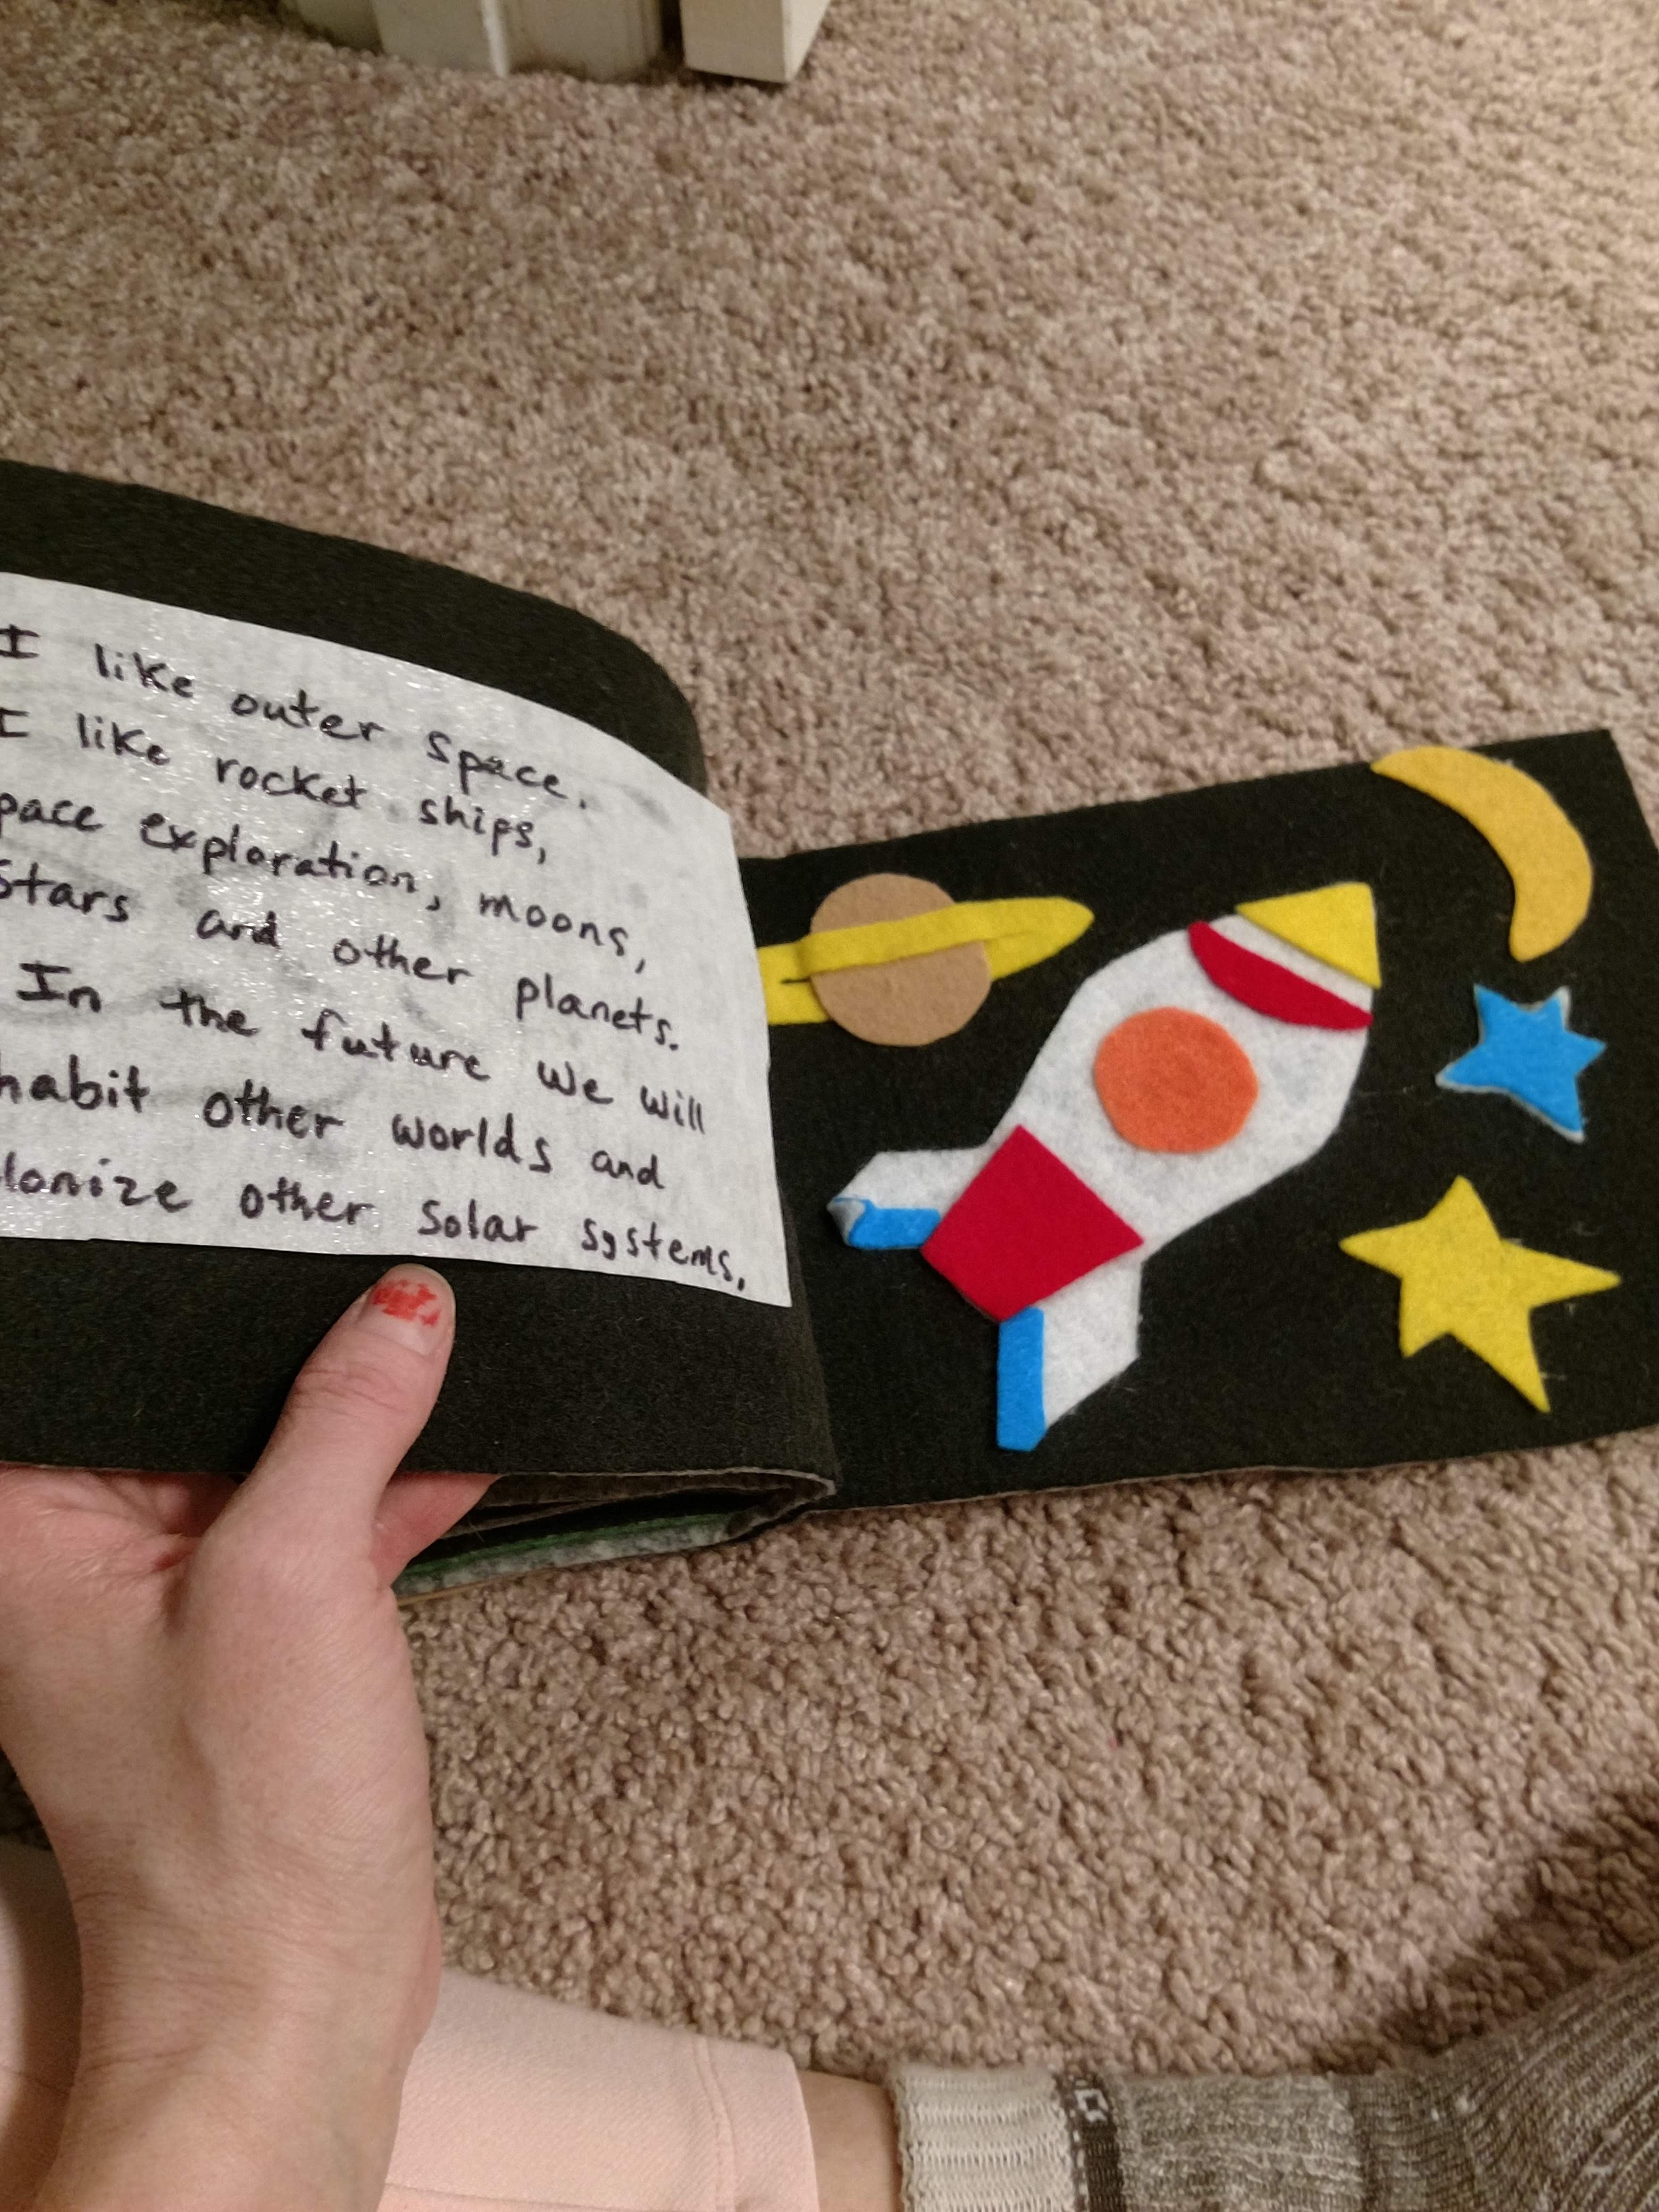 I like outer space.
I like rocket ships,
pace exploration, moons,
Stars and other planets.
In the future we will
habit other worlds and
lonize other solar systems.